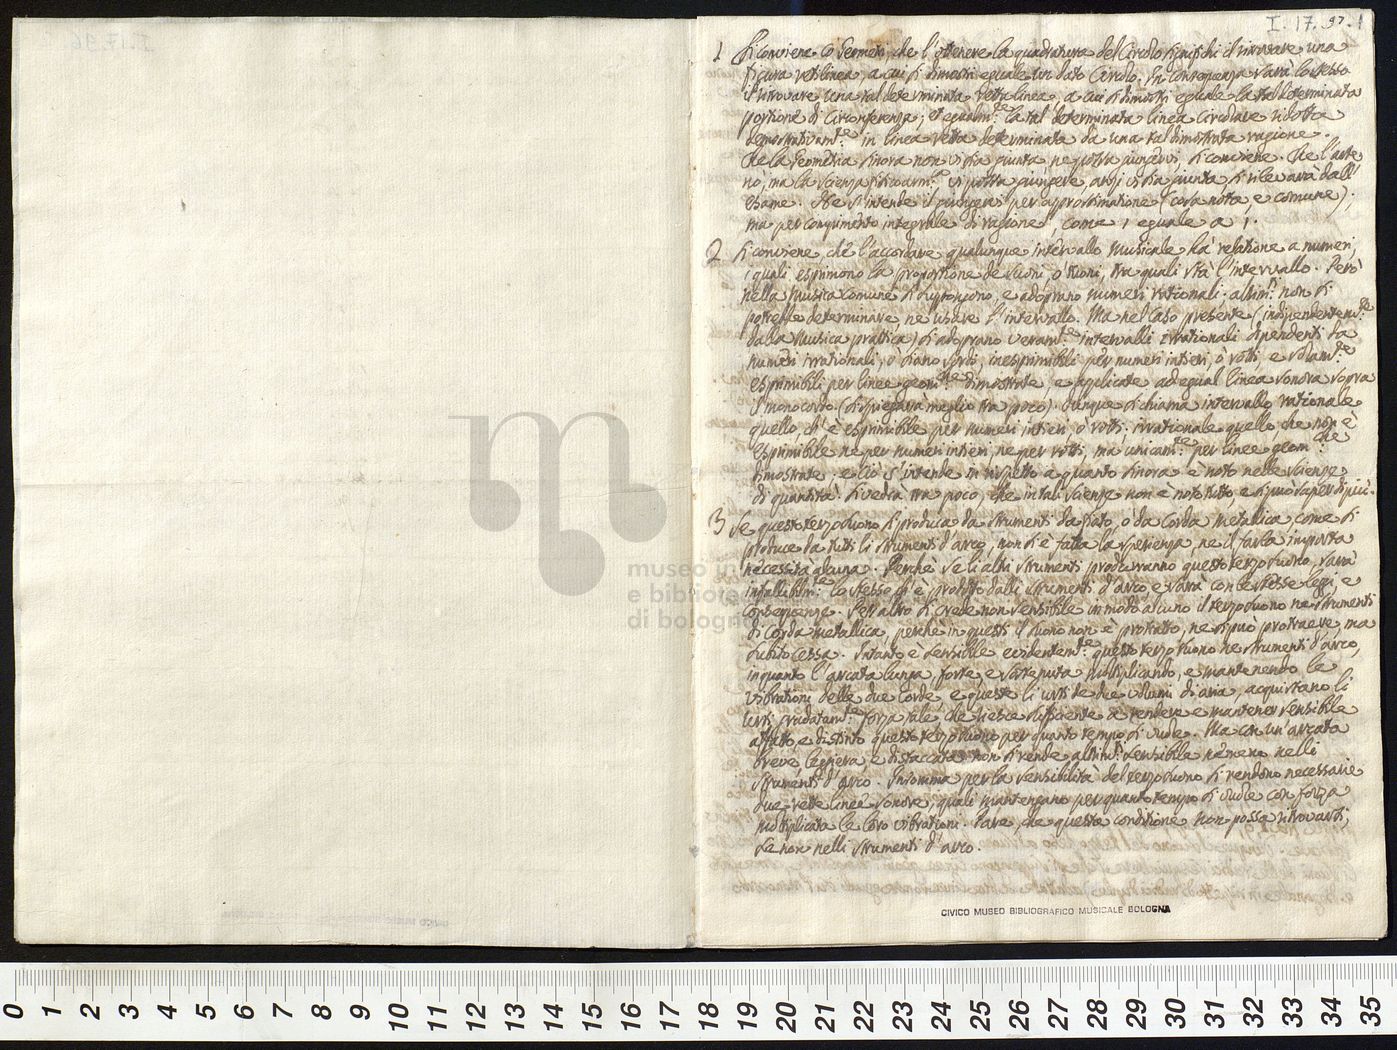 I.17.96
I.17.97.1
1 Si conviene co Geometri, che l'ottenere la quadratura del Circolo significhi il ritrovare una
figura rettilinea, a cui si dimostri eguale un dato Circolo. In conseguenza sarà lo stesso
il ritrovare una tal determinata retta linea, a cui si dimostri eguale la tal determinata
portione di circonferenza; et egualm.te la tal determinata linea circolare ridotta
demostrativam.te in linea retta determinata da una tal dimostrata ragione.
Che la Geometria sinora non vi sia giunta, ne possa giungervi si conviene. Che l'arte
nò, ma la scienza fisicoarm.ca vi possa giungere, anzi vi sia giunta si rileverà dall'
esame. Ne s'intende il giungervi per approssimatione (cosa nota, e comune);
ma per compimento integrale di ragione, come 1 eguale a 1.
2 Si conviene, che l'accordare qualunque intervallo Musicale hà relatione a numeri,
i quali esprimono la proportione de suoni, o tuoni, tra quali stà l'intervallo. Però
nella Musica comune si suppongono, e adoprano numeri rationali: altrim.ti non si
potrebbe determinare, ne usare l'intervallo. Ma nel caso presente (indipendentem.te
dalla Musica prattica) si adoprano veram.te intervalli irrationali dipendenti da
numeri irrationali, o siano sordi, inesprimibili per numeri intieri, ò rotti, e solam.te
esprimibili per linee geom.che dimostrate, e applicate ad egual linea sonora sopra
il monocordo. (si spiegarà meglio tra poco). Dunque si chiama intervallo rationale
quello, ch'è esprimibile per numeri intieri ò rotti; irrationale quello che non è
esprimibile ne per numeri intieri, ne per rotti, ma unicam.te per linee geom.che
dimostrate: e ciò s'intende in rispetto a quanto sinora è noto nelle scienze
di quantità. Si vedrà tra poco, che in tali scienze non è noto tutto, e si può saper di più.
3 Se questo terzo suono si produca da strumenti da fiato, ò da corda metallica, come si
produce da tutti li strumenti d'arco, non si è fatta la sperienza, ne il farla importa
necessità alcuna. Perchè se li altri strumenti produrranno questo terzo suono, sarà
infallibilm.te lo stesso ch'è prodotto dalli strumenti d'arco, e sarà con le stesse leggi, e
conseguenze. Per altro si crede non sensibile in modo alcuno il terzo suono ne strumenti
di corda metallica, perchè in questi il suono non è protratto, ne si può protraere, ma
subito cessa. In tanto è sensibile evidentem.te questo terzo suono ne strumenti d'arco,
inquanto l'arcata lunga, forte, e sostenuta moltiplicando, e mantenendo le
vibrationi delle due corde, e queste li urti de due volumi di aria, acquistano li
urti gradatam.te forza tale, che riesce sufficiente a rendere e mantener sensibile
affatto, e distinto questo terzo suono per quanto tempo si vuole. Ma con un'arcata
breve, leggiera, e distaccata non si rende altrim.ti sensibile nemeno nelli
strumenti d'arco. Insomma per la sensibilità del terzo suono si rendono necessarie
due rette linee sonore, quali mantengano per quanto tempo si vuole con forza
moltiplicata le loro vibrationi. Pare, che questa conditione non possa ritrovarsi,
se non nelli strumenti d'arco.
CIVICO MUSEO BIBLIOGRAFICO MUSICALE BOLOGNA
museo in
e bibliote
di bologna
0 1 2 3 4 5 6 7 8 9 10 11 12 13 14 15 16 17 18 19 20 21 22 23 24 25 26 27 28 29 30 31 32 33 34 35